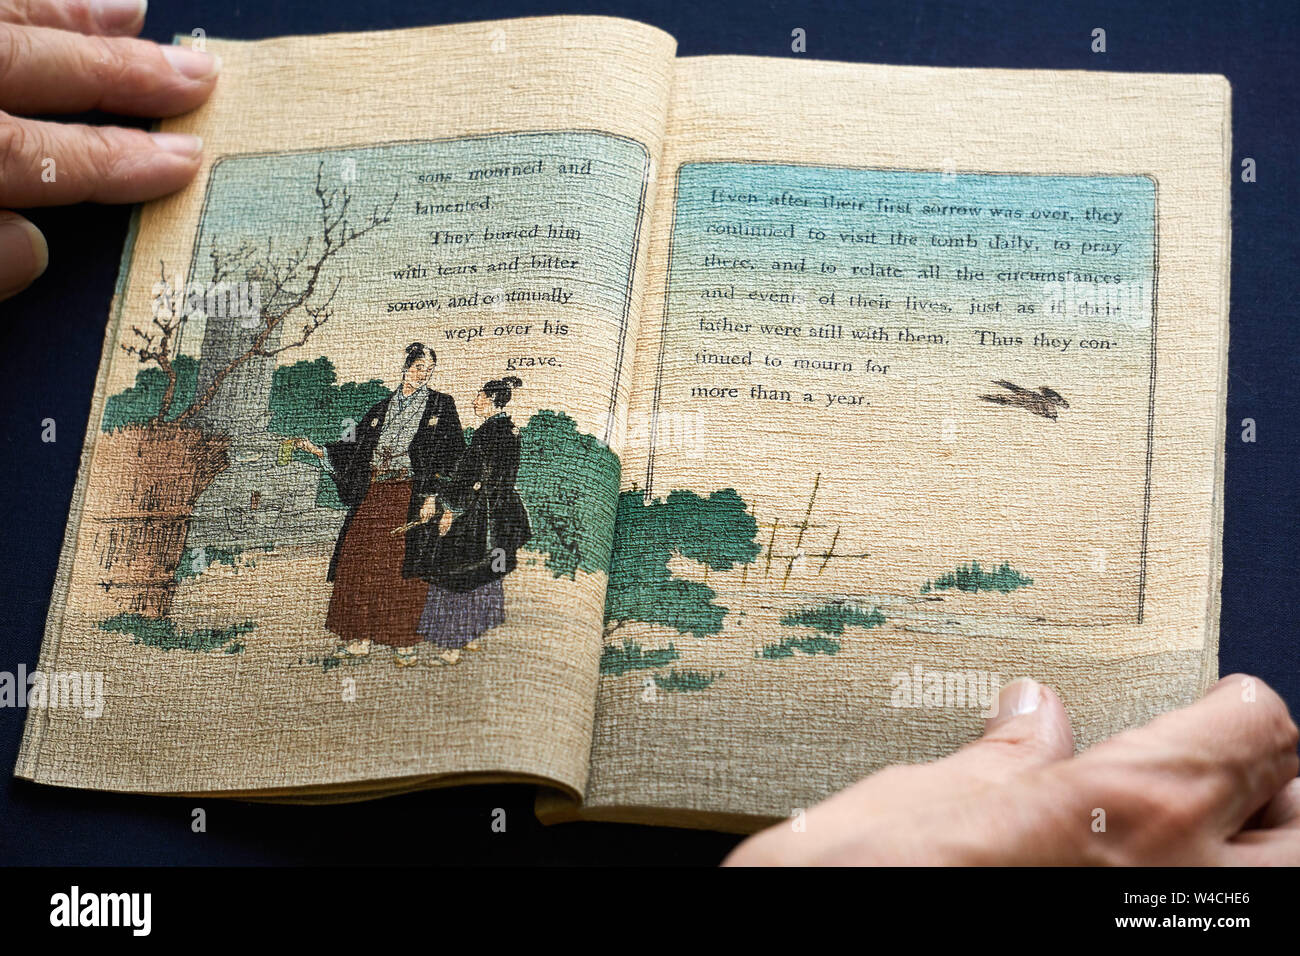 sons mourned and
lamented.
They buried him
with tears and bitter
sorrow, and continually
wept over his
grave.
Even after their first sorrow was over, they
continued to visit the tomb daily, to pray
there, and to relate all the circumstances
and events of their lives, just as if their
father were still with them. Thus they con-
tinued to mourn for
more than a year.
alamy
Image ID: W4CHE6
www.alamy.com